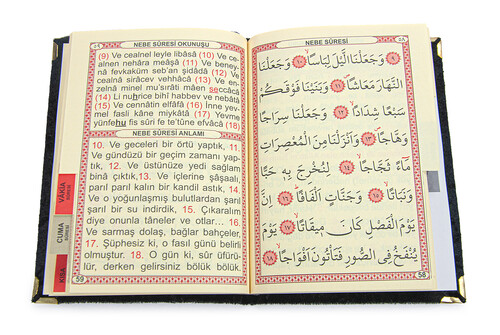 NEBE SÛRESİ OKUNUŞU
(9) Ve cealnel leyle libâsâ (10) Ve ce-
alnen nehâra meâşâ (11) Ve beney-
nâ fevkaküm seb'an şidâdâ (12) Ve
cealnâ sirâcev vehhâcâ (13) Ve en-
zelnâ minel mu'sırâti mâen seccâcâ
(14) Li nuhrice bihî habbev ve nebâtâ
(15) Ve cennâtin elfâfâ (16) İnne yev-
mel fasli kâne mîykâtâ (17) Yevme
yünfehu fis sûri fe te'tûne efvâcâ (18)
NEBE SÛRESİ ANLAMI
10. Ve geceleri bir örtü yaptık, 11.
Ve gündüzü bir geçim zamanı yap-
tık, 12. Ve üstünüze yedi sağlam
binâ çıktık,13. Ve içlerine şâşaalı,
parıl parıl kalın bir kandil astık, 14.
Ve o yoğunlaşmış bulutlardan şarıl
şarıl bir su indirdik, 15. Çıkaralım
diye onunla tâneler ve otlar... 16.
Ve sarmaş dolaş, bağlar bahçeler.
17. Şüphesiz ki, o fasıl günü belirli
olmuştur. 18. O gün ki, sûr üfürü-
lür, derken gelirsiniz bölük bölük.
59
VÂKIA
SÛRESİ
CUMA
SÛRESİ
KISA
NEBE SÛRESİ
٥٨
٩ وَجَعَلْنَا الَّيْلَ لِبَاسًا ١٠ وَجَعَلْنَا
النَّهَارَ مَعَاشًا ١١ وَبَنَيْنَا فَوْقَكُمْ
سَبْعًا شِدَادًا ١٢ وَجَعَلْنَا سِرَاجًا
وَهَّاجًا ١٣ وَاَنْزَلْنَا مِنَ الْمُعْصِرَاتِ
مَاءً ثَجَّاجًا ١٤ لِنُخْرِجَ بِهِ حَبًّا
وَنَبَاتًا ١٥ وَجَنَّاتٍ اَلْفَافًا ١٦ اِنَّ
يَوْمَ الْفَصْلِ كَانَ مِيقَاتًا ١٧ يَوْمَ
يُنْفَخُ فِى الصُّورِ فَتَأْتُونَ اَفْوَاجًا ١٨
58